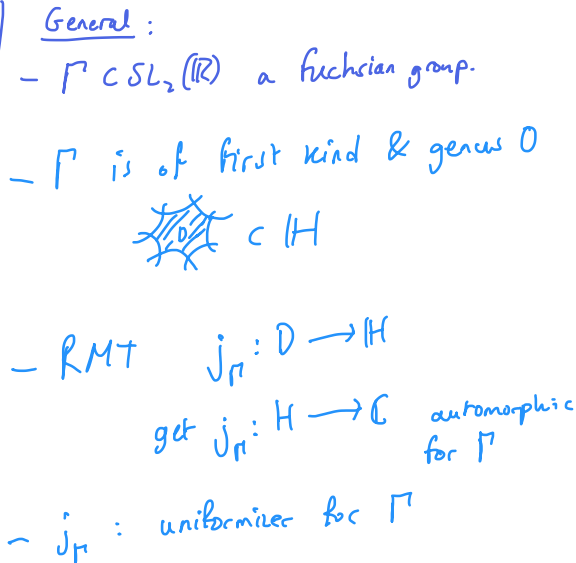 General :
- Γ ⊂ SL₂(ℝ) a fuchsian group.
- Γ is of first kind & genus 0
D ⊂ ℍ
- RMT j_Γ : D → ℍ
get j_Γ : H → ℂ automorphic
for Γ
- j_Γ : uniformizer for Γ